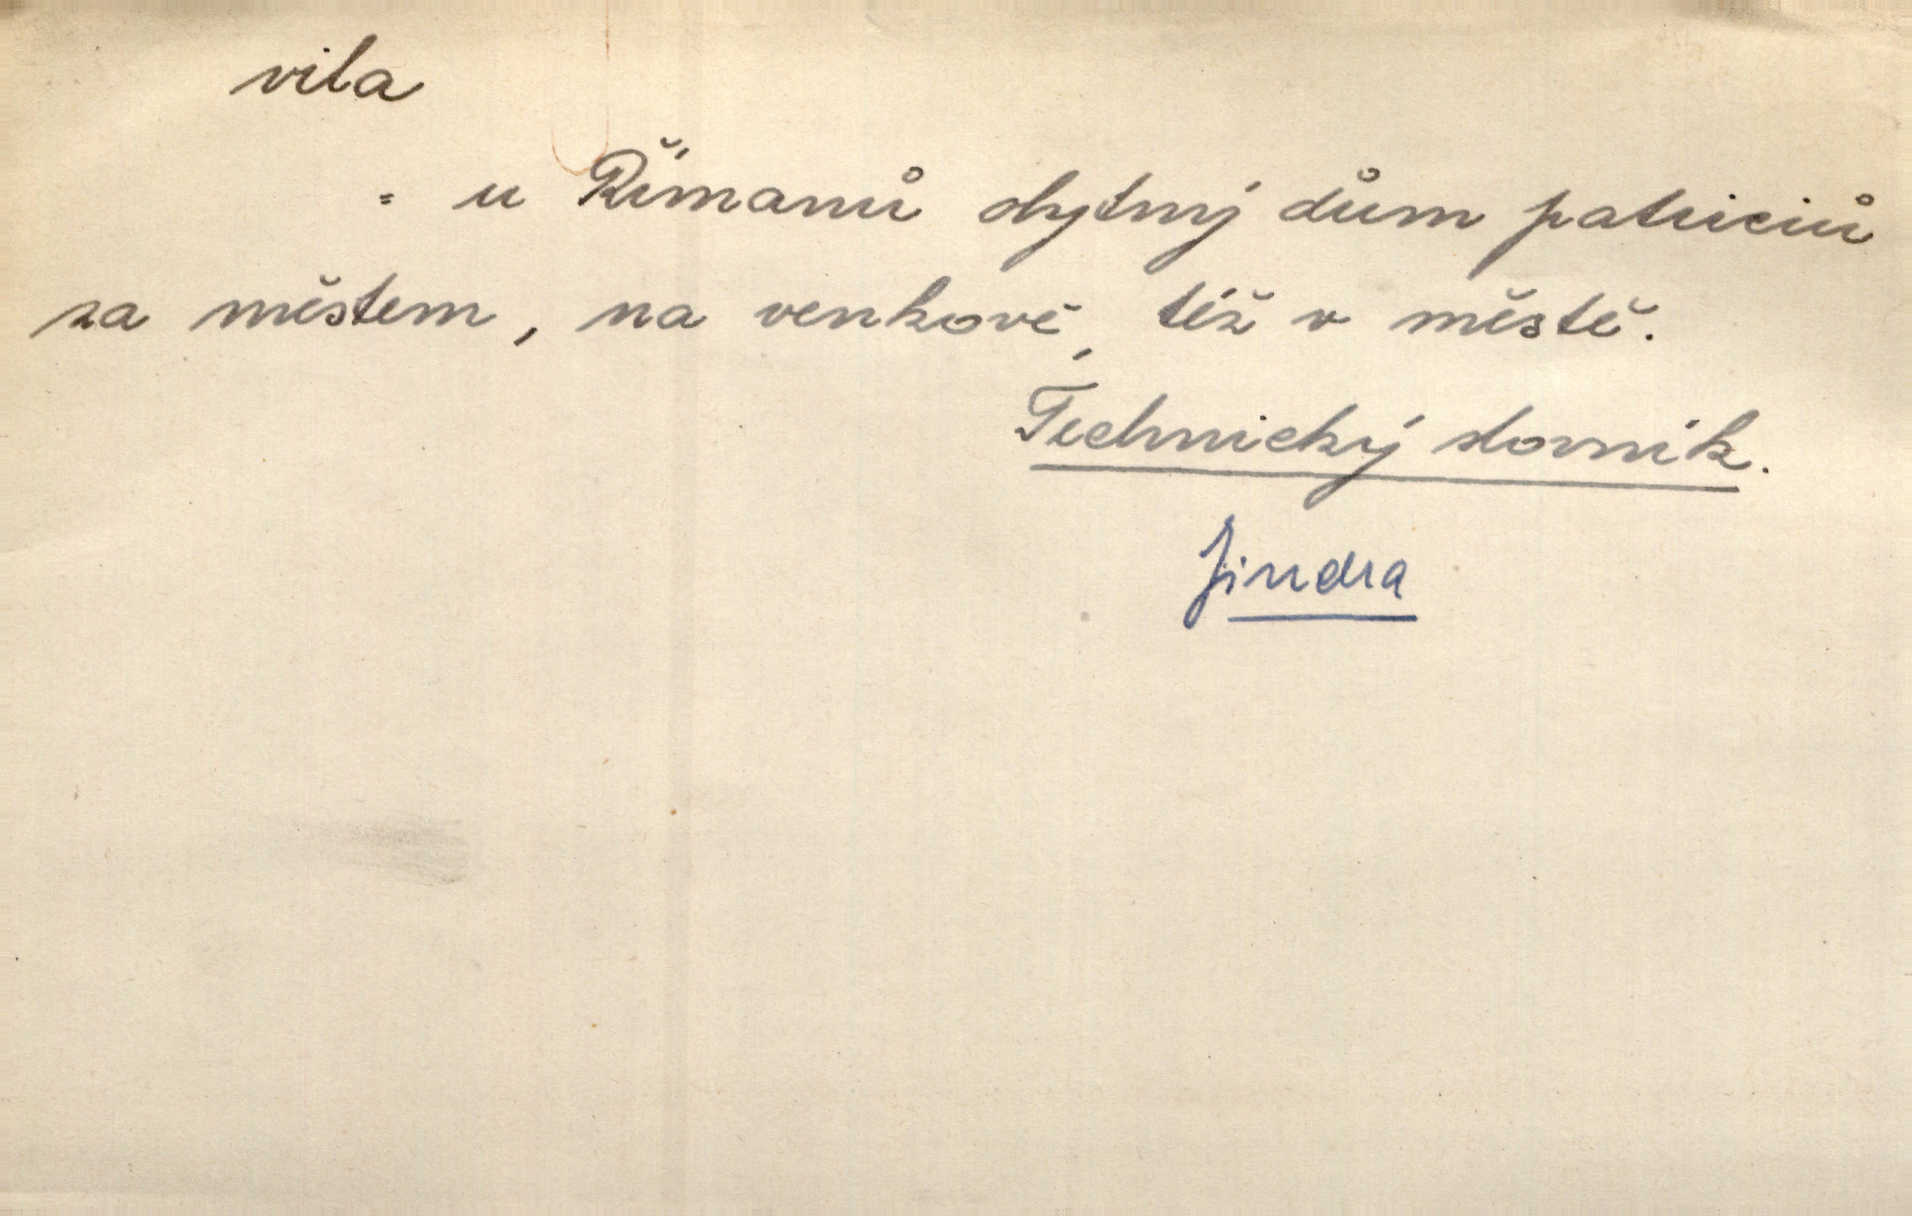 vila
= u Římanů obytný dům patriciů
za městem, na venkově, též v městě.
Technický slovník.
Jindra